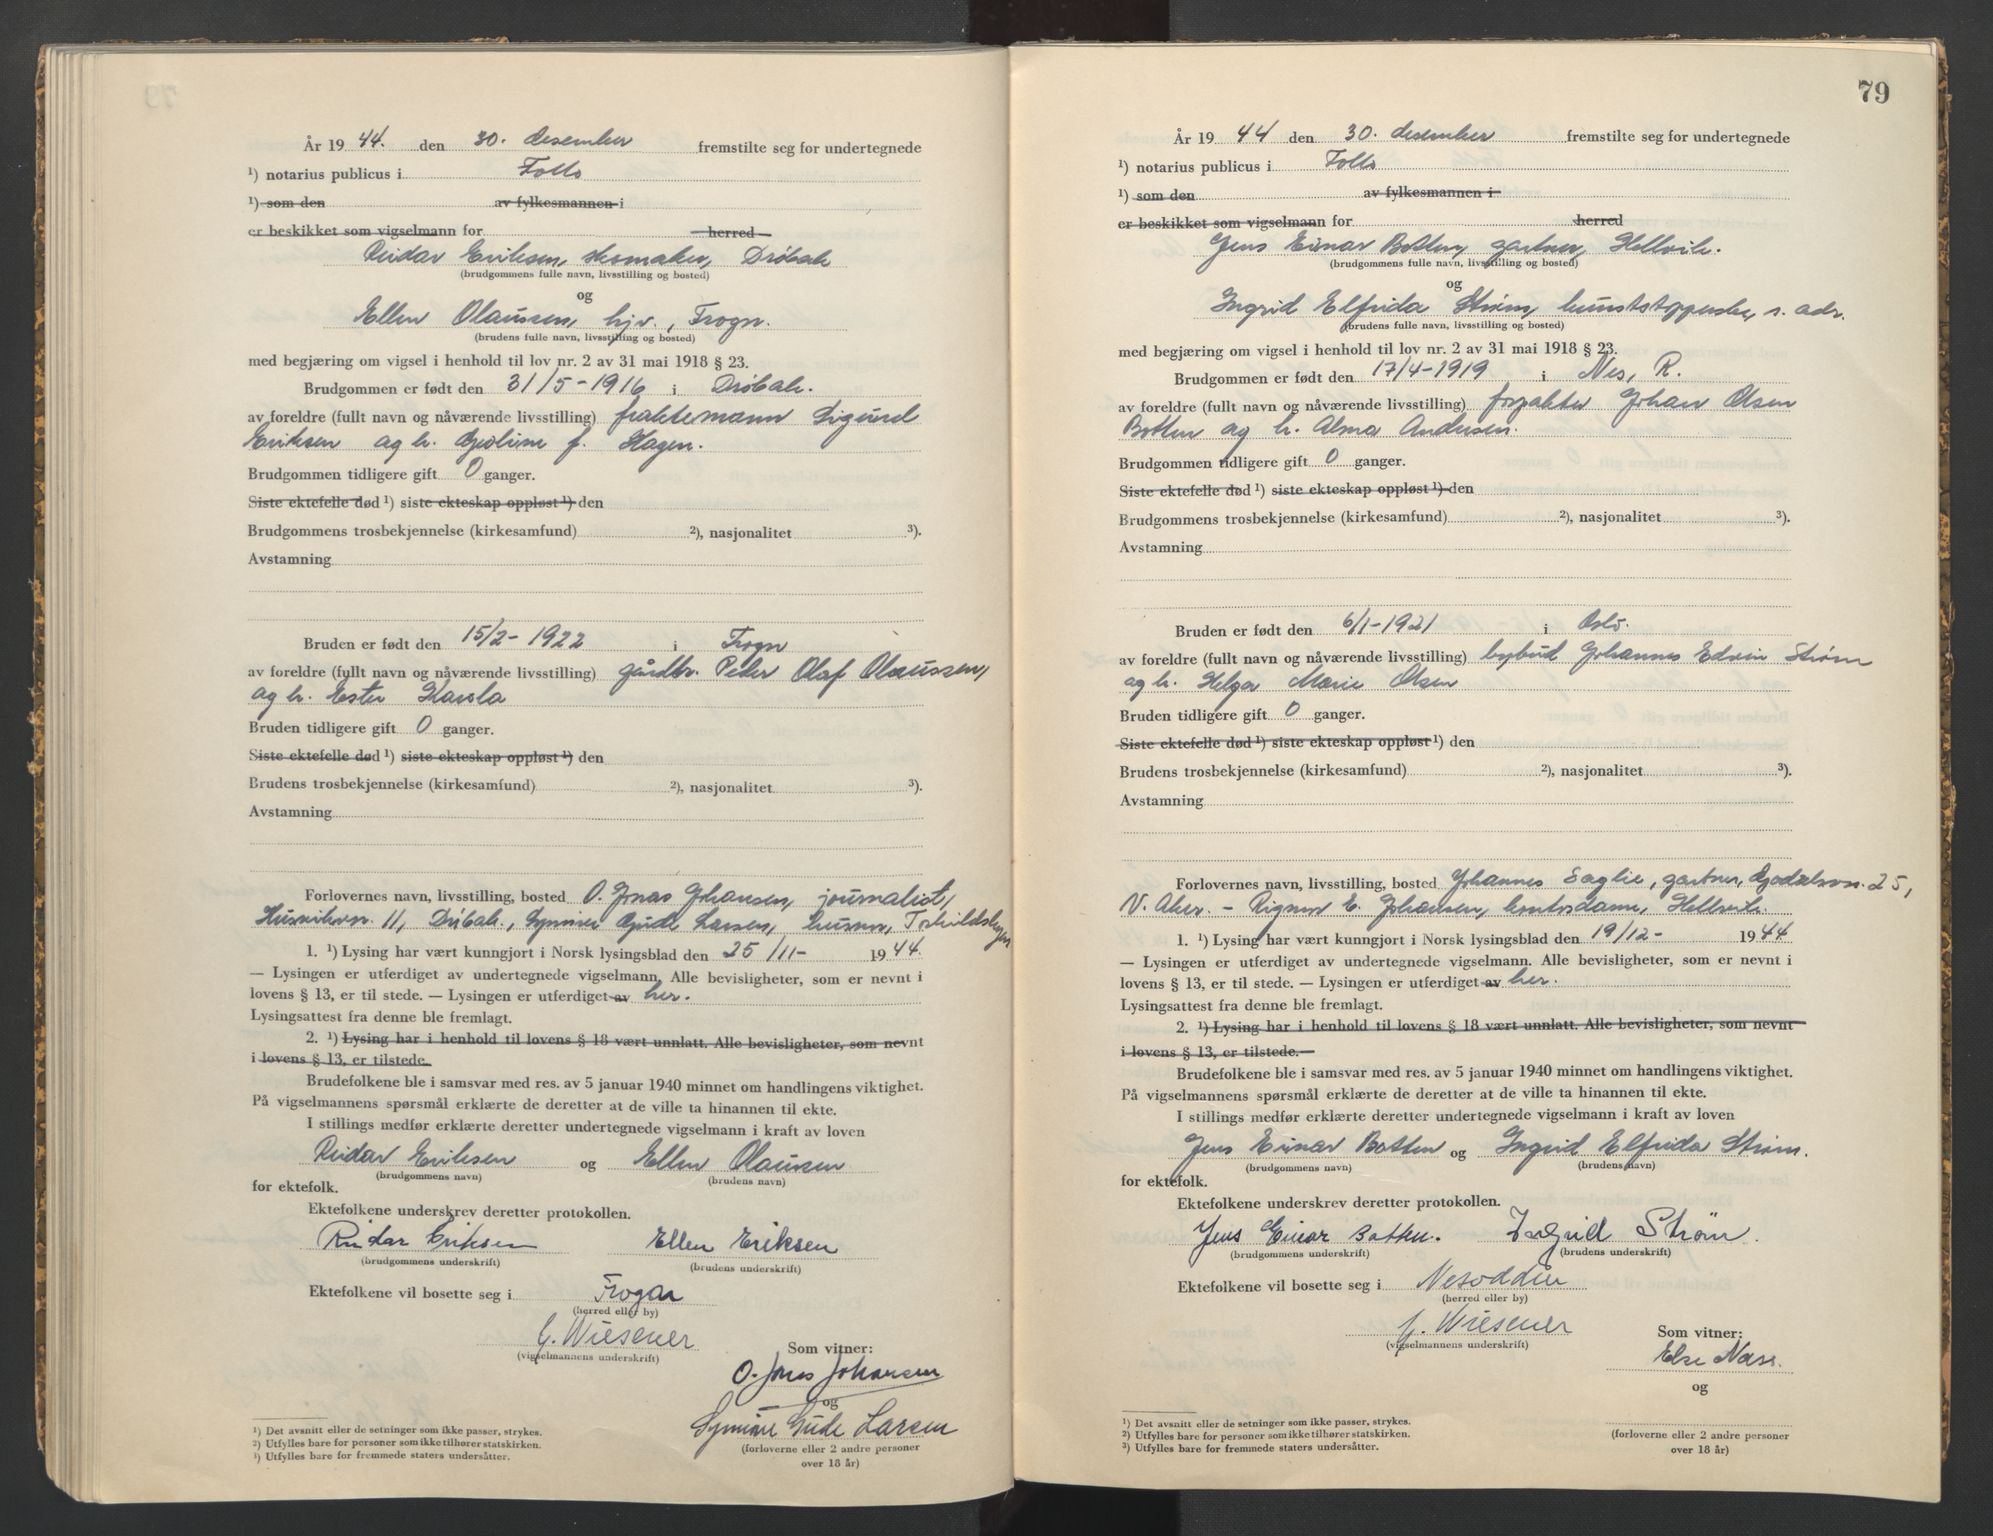 År 19 44. den 30. desember fremstilte seg for undertegnede
¹) notarius publicus i Follo
¹) som den av fylkesmannen i
er beskikket som vigselmann for herred
Reidar Eriksen, skomaker, Drøbak
(brudgommens fulle navn, livsstilling og bosted)
og
Ellen Olaussen, hjv., Frogn.
(brudens fulle navn, livsstilling og bosted)
med begjæring om vigsel i henhold til lov nr. 2 av 31 mai 1918 § 23.
Brudgommen er født den 31/5-1916 i Drøbak.
av foreldre (fullt navn og nåværende livsstilling) fraktemann Sigurd
Eriksen og h. f. Hagen.
Brudgommen tidligere gift 0 ganger.
Siste ektefelle død ¹) siste ekteskap oppløst ¹) den
Brudgommens trosbekjennelse (kirkesamfund) ²), nasjonalitet ³).
Avstamning
Bruden er født den 15/2-1922 i Frogn
av foreldre (fullt navn og nåværende livsstilling) gårdbr. Peder Olaf Olaussen,
og h. Ester Karola
Bruden tidligere gift 0 ganger.
Siste ektefelle død ¹) siste ekteskap oppløst ¹) den
Brudens trosbekjennelse (kirkesamfund) ²), nasjonalitet ³).
Avstamning
Forlovernes navn, livsstilling, bosted O. Jonas Johansen, journalist,
11, Drøbak., Synnøve Gude Larsen, husmor,
1. ¹) Lysing har vært kunngjort i Norsk lysingsblad den 25/11- 1944.
— Lysingen er utferdiget av undertegnede vigselmann. Alle bevisligheter, som er nevnt i
lovens § 13, er til stede. — Lysingen er utferdiget av her.
Lysingsattest fra denne ble fremlagt.
2. ¹) Lysing har i henhold til lovens § 18 vært unnlatt. Alle bevisligheter, som nevnt
i lovens § 13, er tilstede.
Brudefolkene ble i samsvar med res. av 5 januar 1940 minnet om handlingens viktighet.
På vigselmannens spørsmål erklærte de deretter at de ville ta hinannen til ekte.
I stillings medfør erklærte deretter undertegnede vigselmann i kraft av loven
Reidar Eriksen og Ellen Olaussen
(brudgommens navn) (brudens navn)
for ektefolk.
Ektefolkene underskrev deretter protokollen.
Reidar Eriksen Ellen Eriksen
(brudgommens underskrift) (brudens underskrift)
Ektefolkene vil bosette seg i Frogn
(herred eller by)
G. Wiesener
(vigselmannens underskrift)
Som vitner:
O. Jonas Johansen
og
Synnøve Gude Larsen
(forloverne eller 2 andre personer
over 18 år)
¹) Det avsnitt eller de setninger som ikke passer, strykes.
²) Utfylles bare for personer som ikke tilhører statskirken.
³) Utfylles bare for fremmede staters undersåtter.
79
År 19 44 den 30. desember fremstilte seg for undertegnede
¹) notarius publicus i Follo
¹) som den av fylkesmannen i
er beskikket som vigselmann for herred
Jens Einar Botten, gartner, Hellvik.
(brudgommens fulle navn, livsstilling og bosted)
og
Ingrid Elfrida Strøm, kunststopperske, s. adr.
(brudens fulle navn, livsstilling og bosted)
med begjæring om vigsel i henhold til lov nr. 2 av 31 mai 1918 § 23.
Brudgommen er født den 17/4-1919 i Nes, R.
av foreldre (fullt navn og nåværende livsstilling) forpakter Johan Olsen
Botten og h. Alma Andersen.
Brudgommen tidligere gift 0 ganger.
Siste ektefelle død ¹) siste ekteskap oppløst ¹) den
Brudgommens trosbekjennelse (kirkesamfund) ²), nasjonalitet ³).
Avstamning
Bruden er født den 6/1-1921 i Oslo.
av foreldre (fullt navn og nåværende livsstilling) bybud Johannes Edvin Strøm
og h. Helga Marie Olsen
Bruden tidligere gift 0 ganger.
Siste ektefelle død ¹) siste ekteskap oppløst ¹) den
Brudens trosbekjennelse (kirkesamfund) ²), nasjonalitet ³).
Avstamning
Forlovernes navn, livsstilling, bosted Johannes Saglie, gartner, 25,
V. Aker. - Rigmor E. Johansen, kontordame, Hellvik.
1. ¹) Lysing har vært kunngjort i Norsk lysingsblad den 19/12- 1944
— Lysingen er utferdiget av undertegnede vigselmann. Alle bevisligheter, som er nevnt i
lovens § 13, er til stede. — Lysingen er utferdiget av her.
Lysingsattest fra denne ble fremlagt.
2. ¹) Lysing har i henhold til lovens § 18 vært unnlatt. Alle bevisligheter, som nevnt
i lovens § 13, er tilstede.
Brudefolkene ble i samsvar med res. av 5 januar 1940 minnet om handlingens viktighet.
På vigselmannens spørsmål erklærte de deretter at de ville ta hinannen til ekte.
I stillings medfør erklærte deretter undertegnede vigselmann i kraft av loven
Jens Einar Botten og Ingrid Elfrida Strøm.
(brudgommens navn) (brudens navn)
for ektefolk.
Ektefolkene underskrev deretter protokollen.
Jens Einar Botten. Ingrid Strøm.
(brudgommens underskrift) (brudens underskrift)
Ektefolkene vil bosette seg i Nesodden
(herred eller by)
G. Wiesener
(vigselmannens underskrift)
Som vitner:
Else Næss.
og
(forloverne eller 2 andre personer
over 18 år)
¹) Det avsnitt eller de setninger som ikke passer, strykes.
²) Utfylles bare for personer som ikke tilhører statskirken.
³) Utfylles bare for fremmede staters undersåtter.